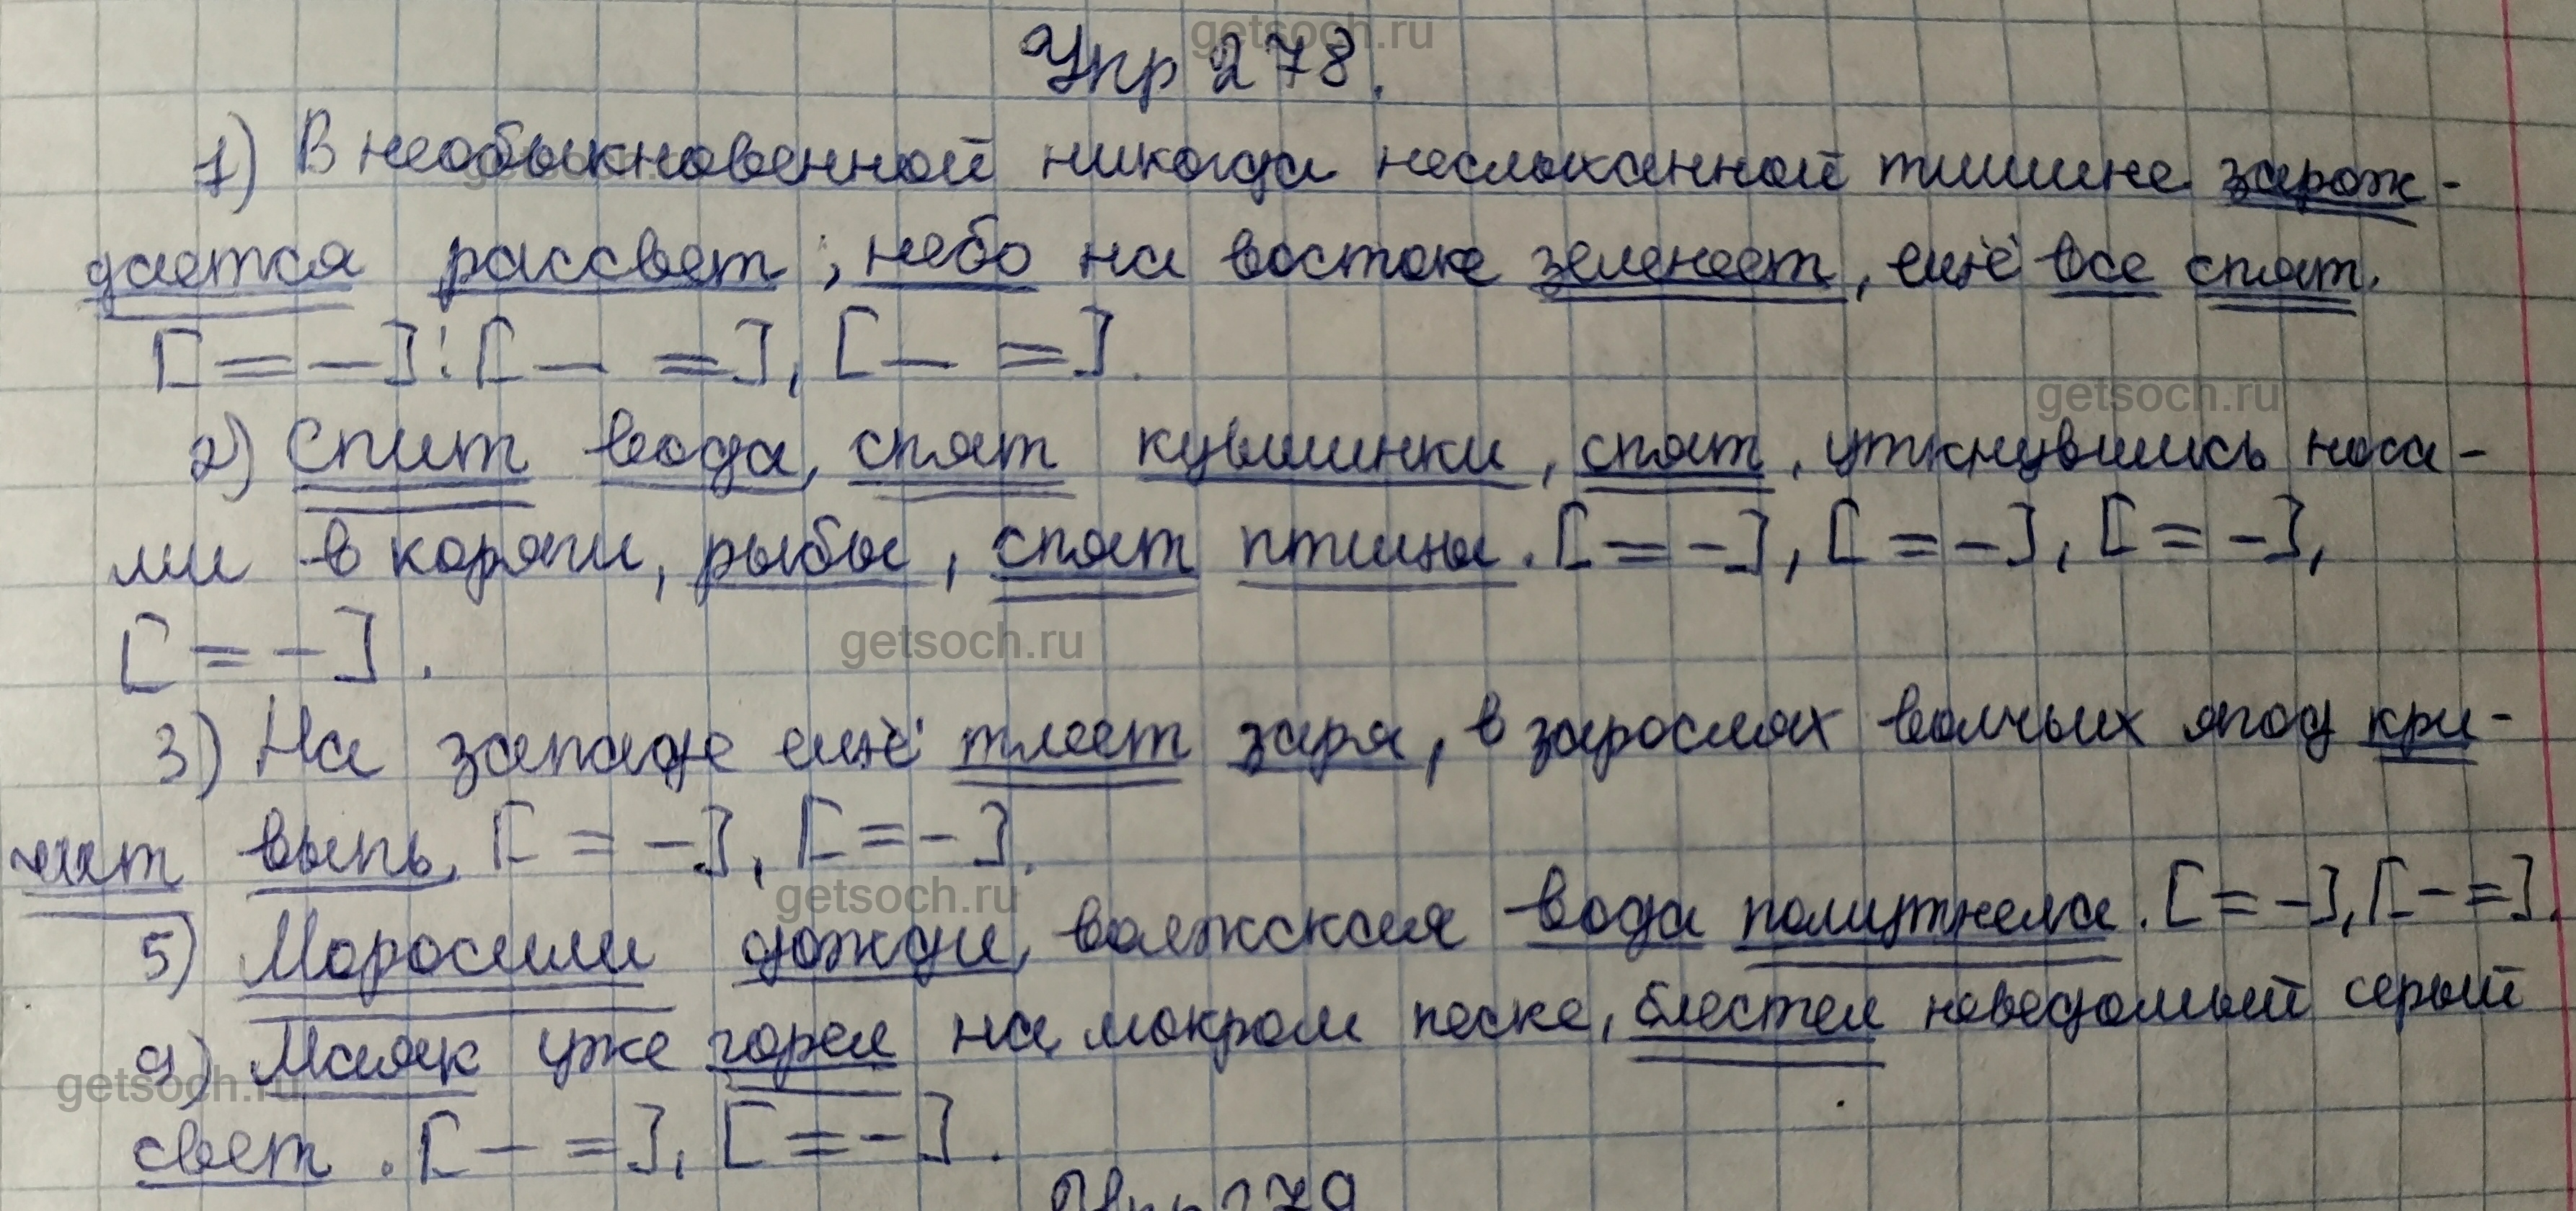 Упр 278.
1) В необыкновенной никогда неслыханной тишине зарож-
дается рассвет; небо на востоке зеленеет, ещё все спят.
[= –]: [– =], [– =].
2) Спит вода, спят кувшинки, спят, уткнувшись носа-
ми в коряги, рыбы, спят птицы. [= –], [= –], [= –],
[= –].
3) На западе ещё тлеет заря, в зарослях волчьих ягод кри-
чит выпь. [= –], [= –].
5) Моросили дожди, волжская вода помутнела. [= –], [– =].
9) Маяк уже горел на мокром песке, блестел неведомый серый
свет. [– =], [= –].
getsoch.ru
getsoch.ru
getsoch.ru
getsoch.ru
getsoch.ru